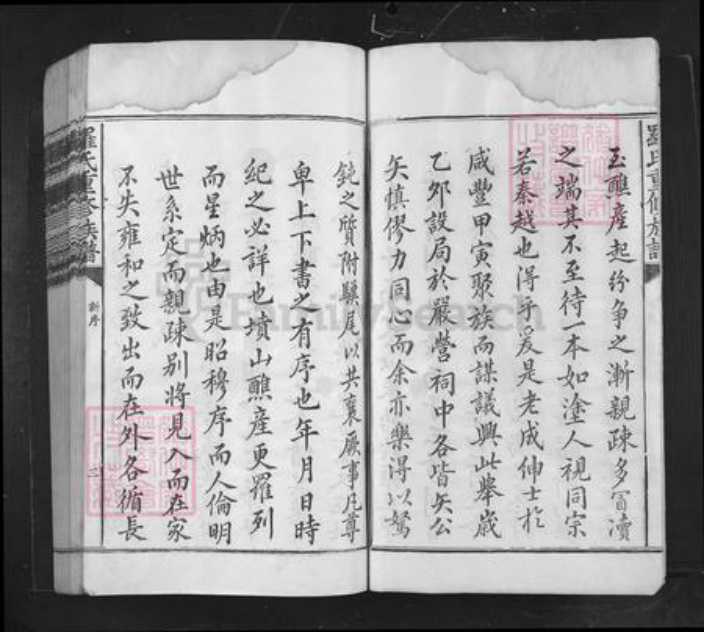 羅氏重修族譜
玉醮產起紛爭之漸親疎多冒瀆
之端其不至待一本如塗人視同宗
若秦越也得乎爰是老成伸士於
咸豐甲寅聚族而謀議興此舉歲
乙夘設局於嚴營祠中各皆矢公
矢慎僇力同心而余亦樂得以駑
鈍之質附驥尾以共襄厥事凡尊
卑上下書之有序也年月日時
紀之必詳也墳山醮產更羅列
而星炳也由是昭穆序而人倫明
世系定而親疎別將見入而在家
不失雍和之致出而在外各循長
羅氏重修族譜
新序
二
FamilySearch